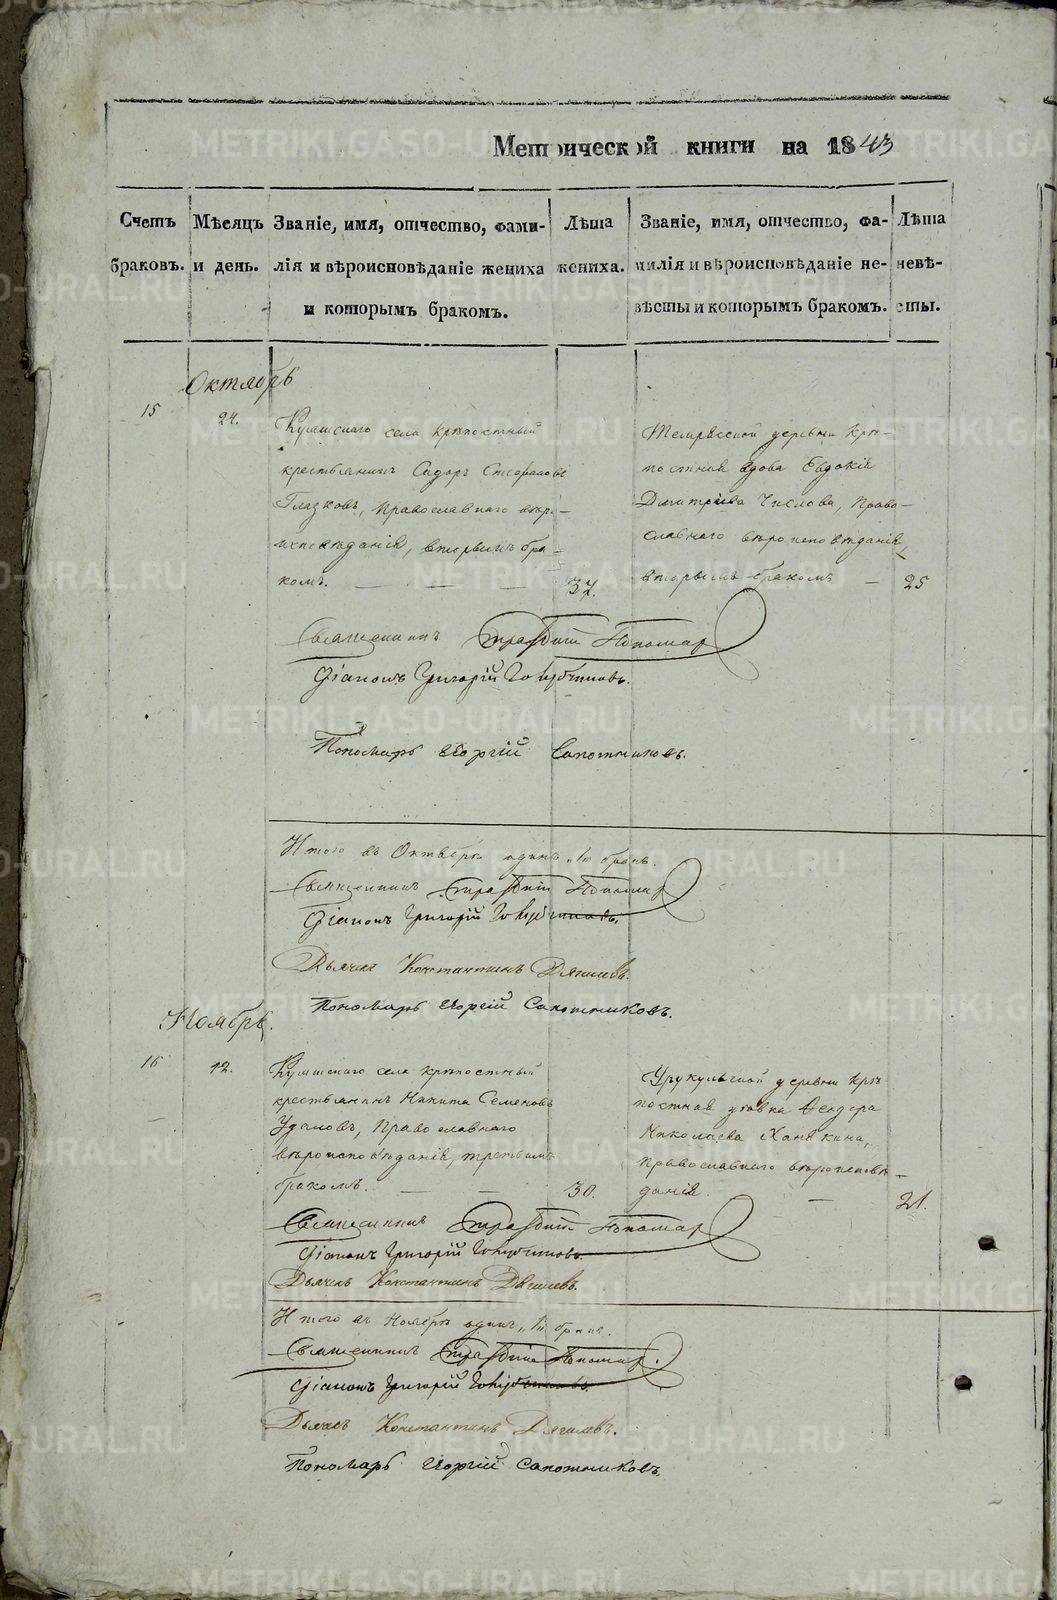 Метрической книги на 1843
Счетъ браковъ.
Мѣсяцъ и день.
Званіе, имя, отчество, фами-
лія и вѣроисповѣданіе жениха
и которымъ бракомъ.
Лѣта
жениха.
Званіе, имя, отчество, фа-
милія и вѣроисповѣданіе не-
вѣсты и которымъ бракомъ.
Лѣта
невѣ-
сты.
Октябрь
15
24.
села крѣпостный
крестьянинъ Сидоръ Стефановъ
Глазковъ, Православнаго вѣро-
исповѣданія, вторымъ бра-
комъ.
37.
деревни крѣ-
постная вдова Евдокія
Дмитріева Числова, Право-
славнаго вѣроисповѣданія,
вторымъ бракомъ
25
Священникъ
Діаконъ Григорій
Пономарь Георгій Сапожниковъ.
Итого въ Октябрѣ одинъ „1„ бракъ.
Священникъ
Діаконъ Григорій
Дьячекъ Константинъ
Пономарь Георгій Сапожниковъ.
Ноябрь.
16
12.
села крѣпостный
крестьянинъ Никита Семеновъ
Удаловъ, Православнаго
вѣроисповѣданія, третьимъ
бракомъ.
30.
деревни крѣ-
постная дѣвка Феодора
Николаева Ханькина,
Православнаго вѣроисповѣ-
данія.
21.
Священникъ
Діаконъ Григорій
Дьячекъ Константинъ
Итого въ Ноябрѣ одинъ „1„ бракъ.
Священникъ
Діаконъ Григорій
Дьячекъ Константинъ
Пономарь Георгій Сапожниковъ.
METRIKI.GASO-URAL.RU